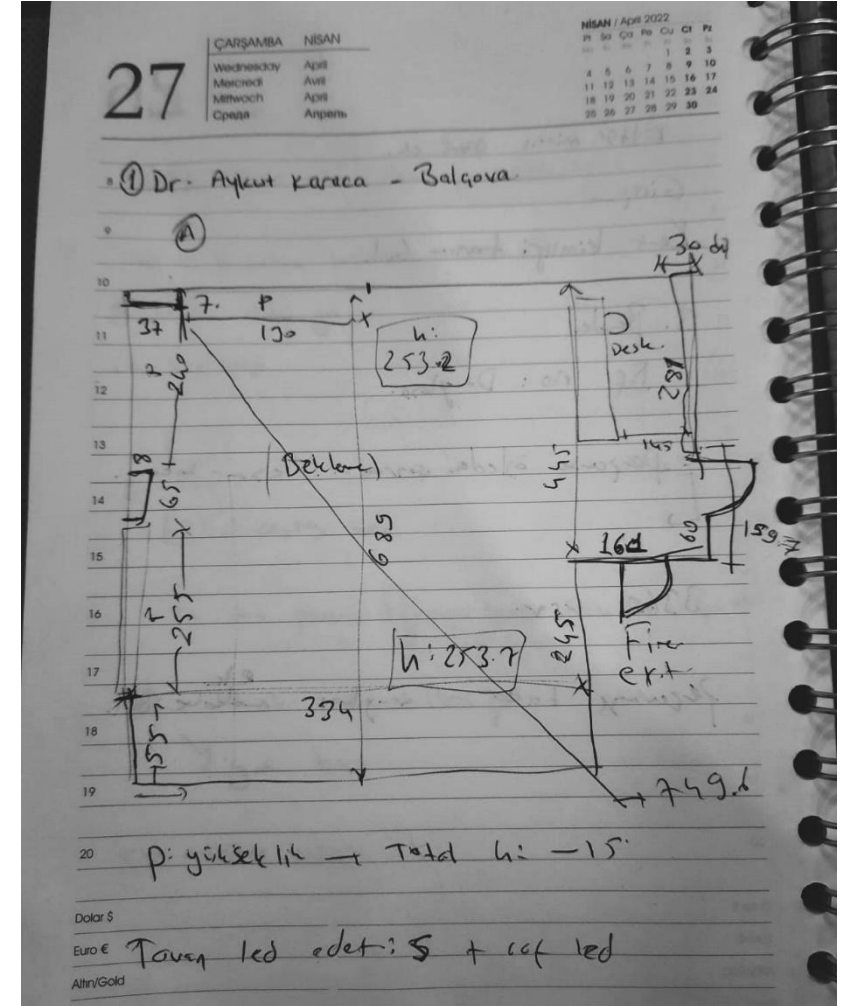 27
ÇARŞAMBA NİSAN
Wednesday April
Mercredi Avril
Mittwoch April
Среда Апрель
NİSAN / April 2022
Pt Sa Ça Pe Cu Ct Pz
1 2 3
4 5 6 7 8 9 10
11 12 13 14 15 16 17
18 19 20 21 22 23 24
25 26 27 28 29 30
① Dr. Aykut Karaca - Balçova
9
A
30
10
7. P
37
130
11
h:
253.2
Desk.
182
P
240
12
13
145
8
65
(Bekleme)
445
14
685
60
15
161
P
255
16
245
Fire
ext.
h: 253.7
17
334
18
55
19
749.6
20
P: yükseklik → Total h: -15
Dolar $
Euro € Tavan led adet: 5 + led
Altın/Gold